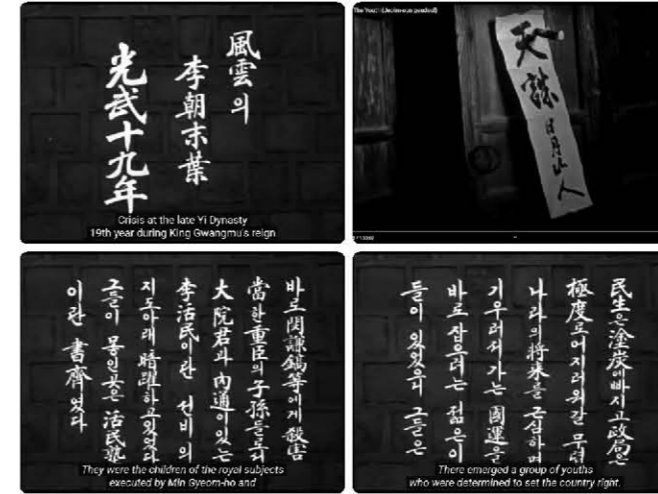 風雲의
李朝末葉
光武十九年
Crisis at the late Yi Dynasty
19th year during King Gwangmu's reign
天誅
日月山人
바로閔謙鎬等에게殺害
當한重臣의子孫들로서
大院君과 內通이있는
李活民이란 선비의
지도아래暗躍하고있었다
그들이 모인곳은 活民塾
이란 書齋였다
They were the children of the royal subjects
executed by Min Gyeom-ho and
民生은塗炭에빠지고政局은
極度로어지러워갈 무렵
나라의將來를 근심하며
기우러저가는 國運을
바로 잡으려는 젊은이
들이 있었으니 그들은
There emerged a group of youths
who were determined to set the country right.